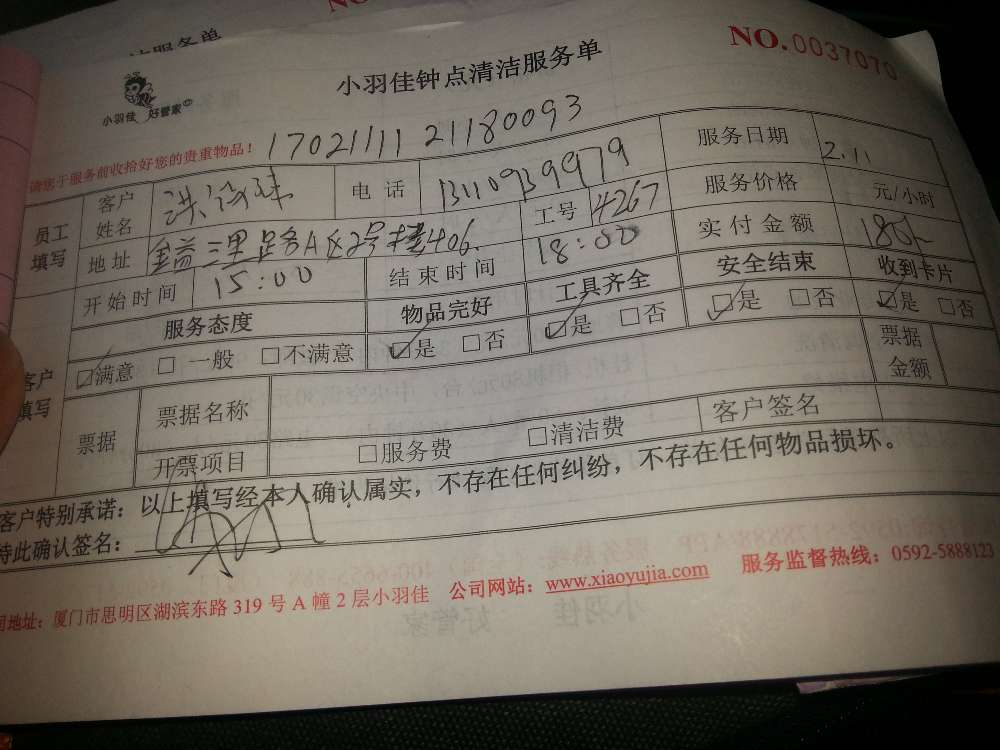 NO.
洁服务单
小羽佳 好管家
小羽佳钟点清洁服务单
NO.0037070
请您于服务前收拾好您的贵重物品！ 1702111121180093
员工填写 客户姓名 电话 13110939979 服务日期 2.11
地址 金益三里 A区2号楼406. 工号 4267 服务价格 元/小时
开始时间 15:00 结束时间 18:00 实付金额
服务态度 物品完好 工具齐全 安全结束 收到卡片
客户填写 ☑满意 □一般 □不满意 ☑是 □否 ☑是 □否 ☑是 □否 ☑是 □否
票据 票据名称 票据金额
开票项目 □服务费 □清洁费 客户签名
客户特别承诺：以上填写经本人确认属实，不存在任何纠纷，不存在任何物品损坏。
特此确认签名：
司地址：厦门市思明区湖滨东路319号A幢2层小羽佳 公司网站：www.xiaoyujia.com 服务监督热线：0592-5888123